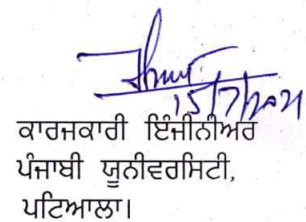 15/7/2021
ਕਾਰਜਕਾਰੀ ਇੰਜੀਨੀਅਰ
ਪੰਜਾਬੀ ਯੂਨੀਵਰਸਿਟੀ,
ਪਟਿਆਲਾ।